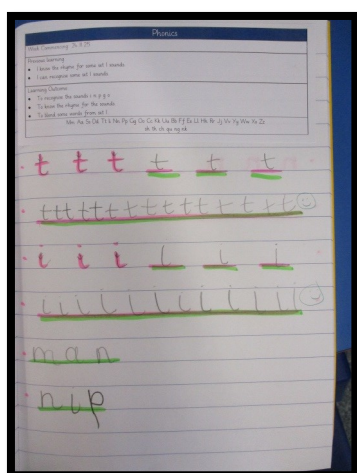 Phonics
Week Commencing:
Previous learning
• I know the rhyme for some set 1 sounds.
• I can recognise some set 1 sounds.
Learning Outcome
• To recognise the sounds i n p g o
• To know the rhyme for the sounds.
• To blend some words from set 1.
Mm Aa Ss Dd Tt Ii Nn Pp Gg Oo Cc Kk Uu Bb Ff Ee Ll Hh Rr Jj Vv Yy Ww Xx Zz
sh th ch qu ng nk
t t t t t t
t t t t t t t t t t t t t t t
i i i i i i
i i i i i i i i i i i i i
man
nip